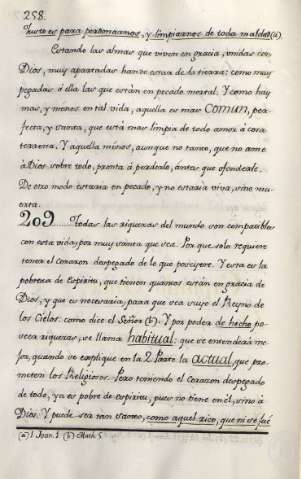 258.
Justo es para perdonarnos, y limpiarnos de toda maldad (a).
Estando las almas que viven en gracia, unidas con
Dios, muy apartadas han de estar de la tierra: como muy
pegadas á ella las que están en pecado mortal. Y como hay
mas, y menos en tal vida, aquella es mas COMUN, per-
fecta, y santa, que está mas limpia de todo amor á cosa
terrena. Y aquella menos, aunque no tanto, que no ame
à Dios sobre todo, pronta á perderlo, antes que ofenderle.
De otro modo estaria en pecado, y no estaria viva, sino mu-
erta.
209 Todas las riquezas del mundo son compatibles
con esta vida, por muy santa que sea. Por que solo requiere
tener el corazon despegado de lo que poseyere. Y esta es la
pobreza de Espiritu, que tienen quantos están en gracia de
Dios, y que es necesaria, para que sea suyo el Reyno de
los Cielos: como dice el Señor (b). Y por poder de hecho po-
seer riquezas, se llama habitual: que se entenderá me-
jor, quando se explique en la 2 Parte la actual, que pro-
meten los Religiosos. Pero teniendo el Corazon despegado
de todo, ya es pobre de espiritu, pues no tiene en él, sino á
Dios. Y puede ser tan santo, como aquel rico, que ni se fué
(a) 1 Joan. 1. (b) Math. 5.